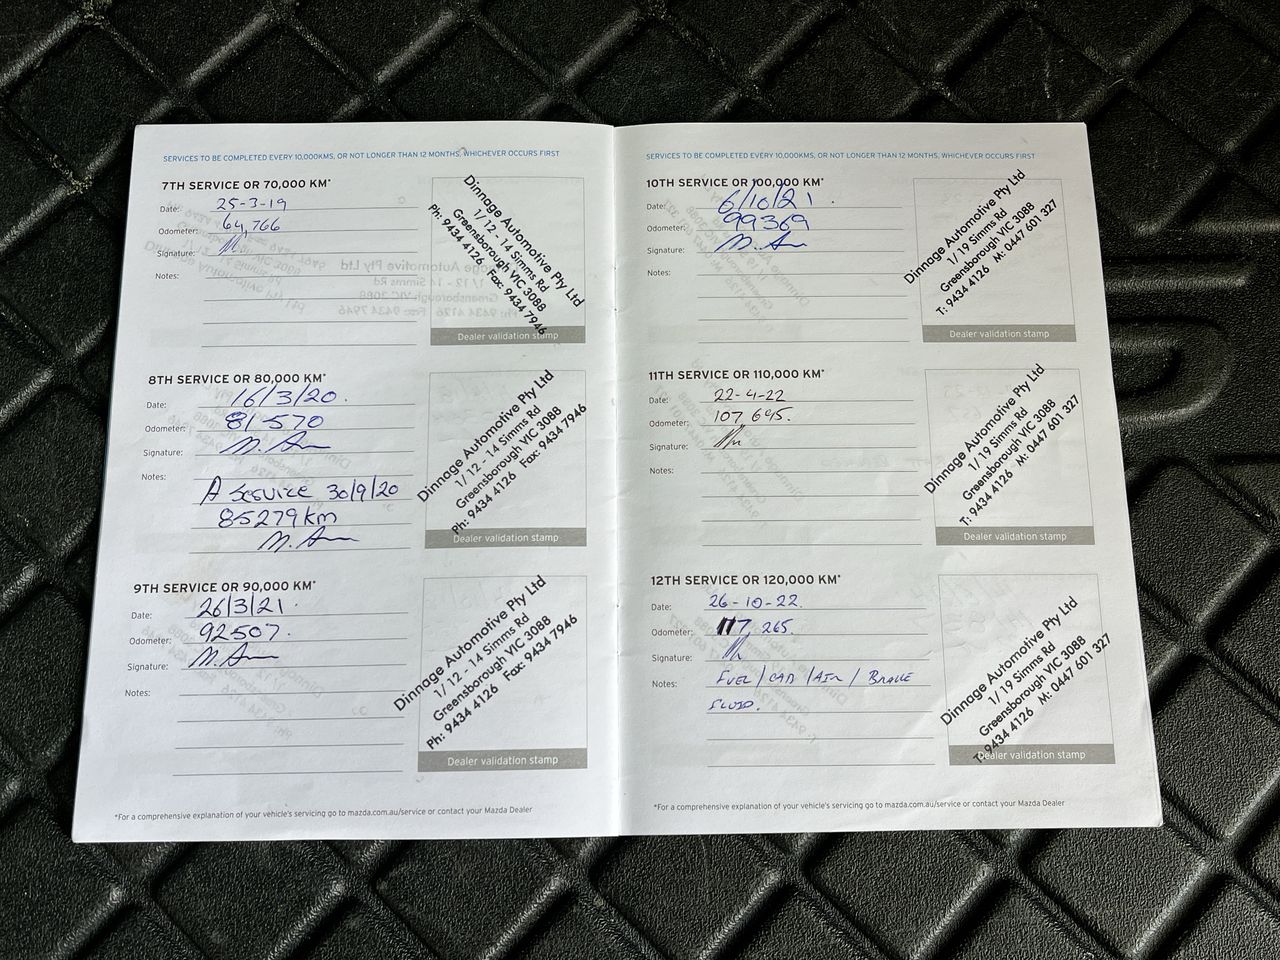 SERVICES TO BE COMPLETED EVERY 10,000KMS, OR NOT LONGER THAN 12 MONTHS, WHICHEVER OCCURS FIRST
7TH SERVICE OR 70,000 KM*
Date: 25-3-19
Odometer: 64,766
Signature:
Notes:
Dinnage Automotive Pty Ltd
1/12 - 14 Simms Rd
Greensborough VIC 3088
Ph: 9434 4126 Fax: 9434 7946
Dealer validation stamp
8TH SERVICE OR 80,000 KM*
Date: 16/3/20.
Odometer: 81570
Signature:
Notes:
A Service 30/9/20
85279km
Dinnage Automotive Pty Ltd
1/12 - 14 Simms Rd
Greensborough VIC 3088
Ph: 9434 4126 Fax: 9434 7946
Dealer validation stamp
9TH SERVICE OR 90,000 KM*
Date: 26/3/21.
Odometer: 92507.
Signature:
Notes:
Dinnage Automotive Pty Ltd
1/12 - 14 Simms Rd
Greensborough VIC 3088
Ph: 9434 4126 Fax: 9434 7946
Dealer validation stamp
*For a comprehensive explanation of your vehicle's servicing go to mazda.com.au/service or contact your Mazda Dealer
SERVICES TO BE COMPLETED EVERY 10,000KMS, OR NOT LONGER THAN 12 MONTHS, WHICHEVER OCCURS FIRST
10TH SERVICE OR 100,000 KM*
Date: 6/10/21.
Odometer: 99369
Signature:
Notes:
Dinnage Automotive Pty Ltd
1/19 Simms Rd
Greensborough VIC 3088
T: 9434 4126 M: 0447 601 327
Dealer validation stamp
11TH SERVICE OR 110,000 KM*
Date: 22-4-22
Odometer: 107,695.
Signature:
Notes:
Dinnage Automotive Pty Ltd
1/19 Simms Rd
Greensborough VIC 3088
T: 9434 4126 M: 0447 601 327
Dealer validation stamp
12TH SERVICE OR 120,000 KM*
Date: 26-10-22.
Odometer: 117,265.
Signature:
Notes: FUEL/CAB/AIR/BRAKE
FLUID.
Dinnage Automotive Pty Ltd
1/19 Simms Rd
Greensborough VIC 3088
T: 9434 4126 M: 0447 601 327
Dealer validation stamp
*For a comprehensive explanation of your vehicle's servicing go to mazda.com.au/service or contact your Mazda Dealer